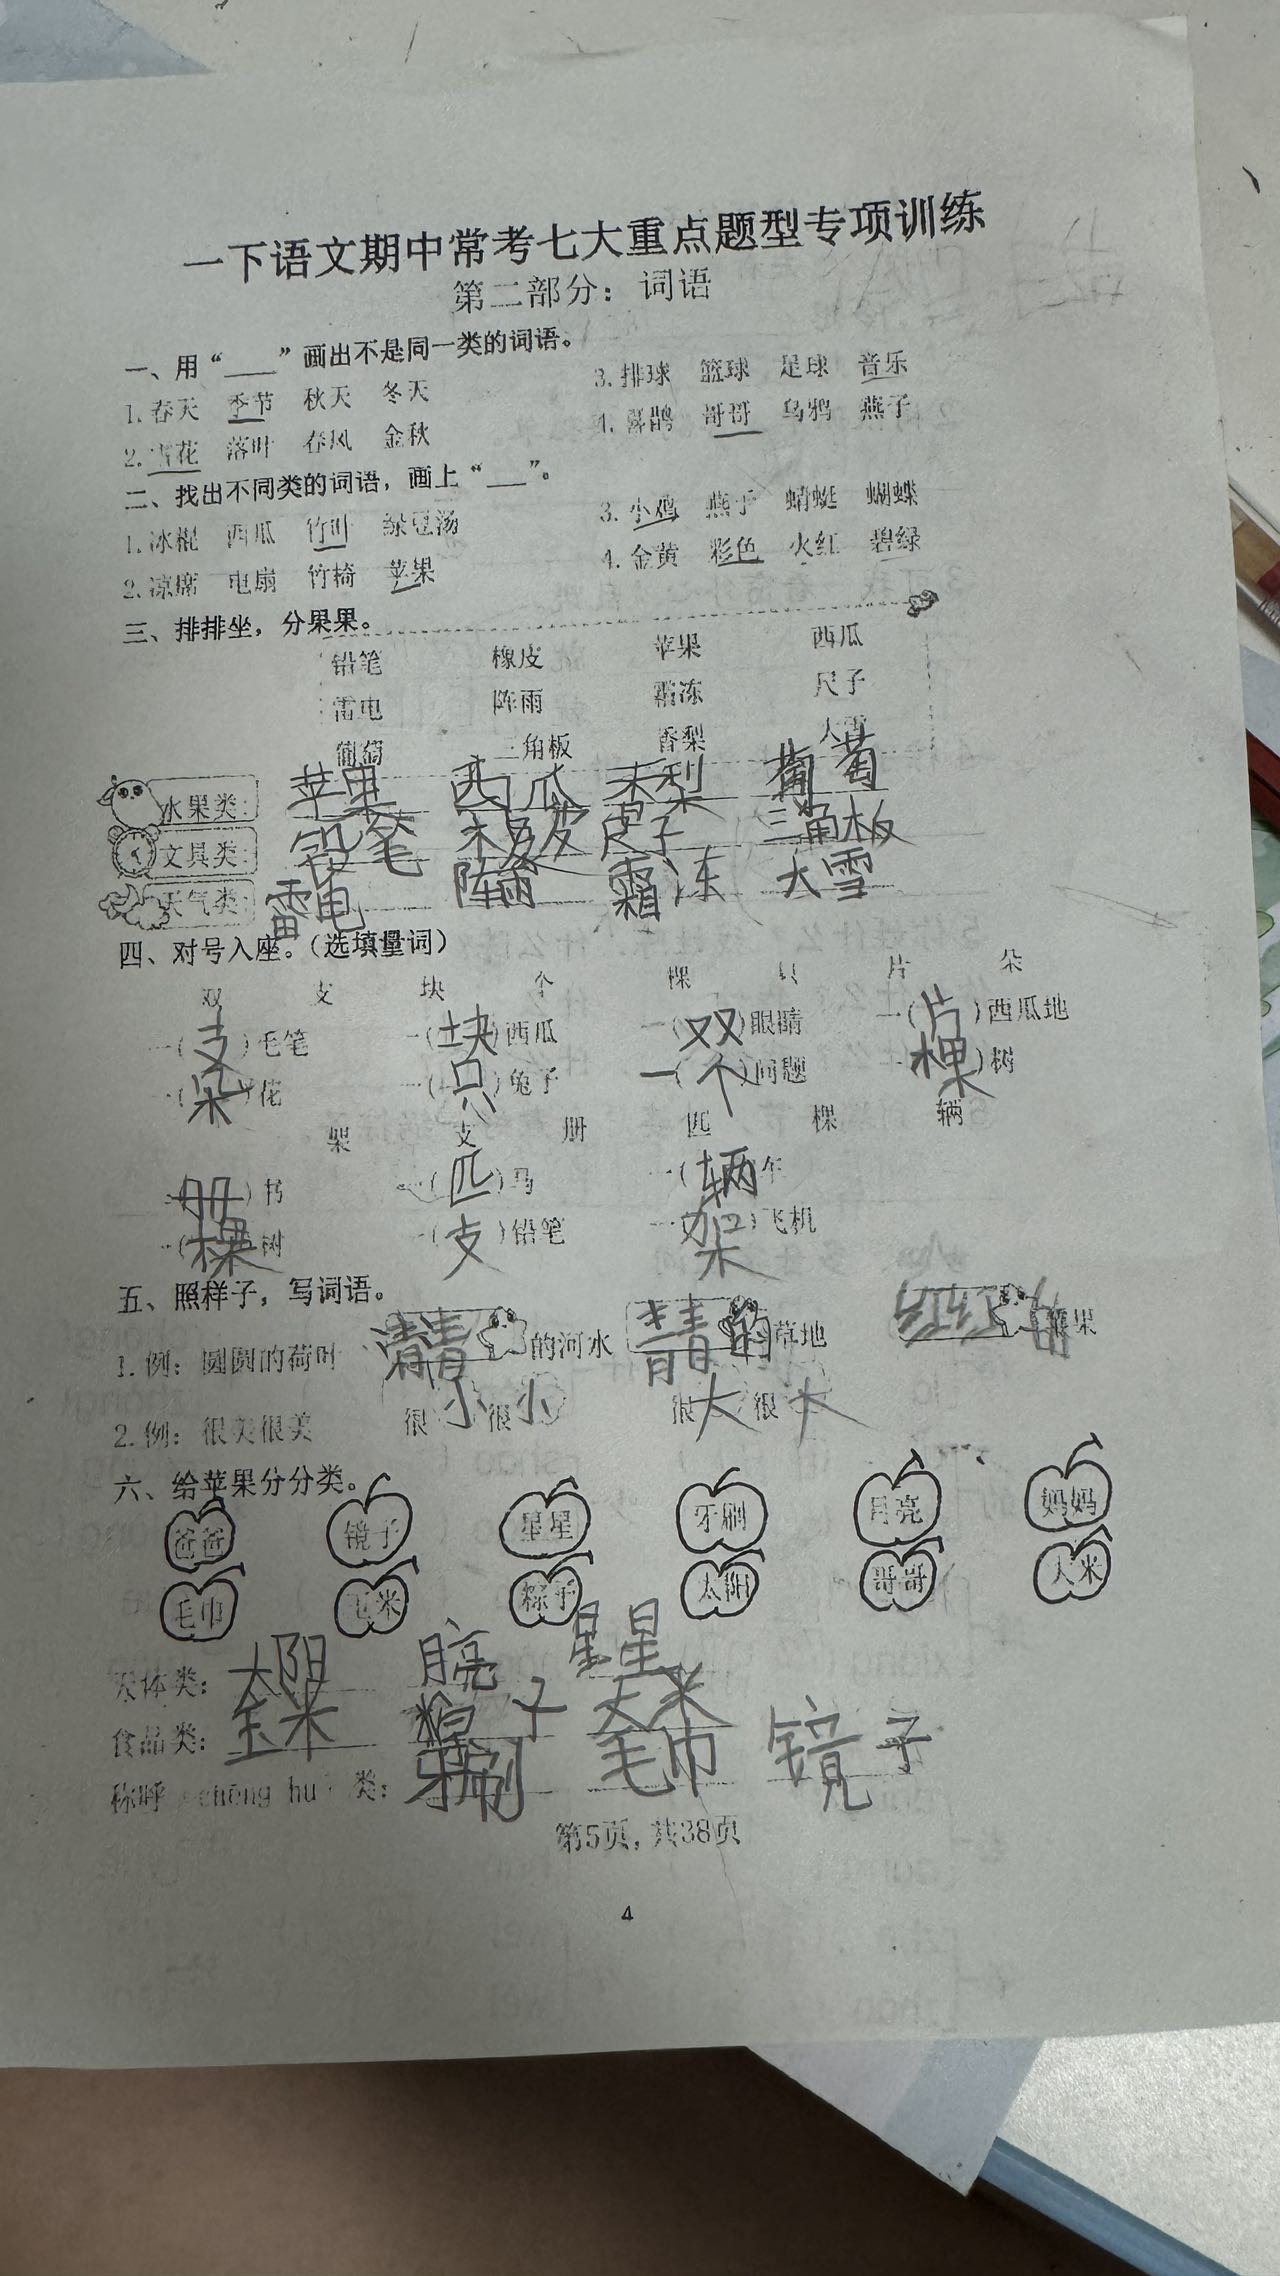 一下语文期中常考七大重点题型专项训练
第二部分：词语
一、用“___”画出不是同一类的词语。
1. 春天 季节 秋天 冬天
3. 排球 篮球 足球 音乐
2. 雪花 落叶 春风 金秋
4. 喜鹊 哥哥 乌鸦 燕子
二、找出不同类的词语，画上“___”。
1. 冰棍 西瓜 竹叶 绿豆汤
3. 小鸡 燕子 蜻蜓 蝴蝶
2. 凉席 电扇 竹椅 苹果
4. 金黄 彩色 火红 碧绿
三、排排坐，分果果。
铅笔 橡皮 苹果 西瓜
雷电 阵雨 霜冻 尺子
葡萄 三角板 香梨 大雪
水果类： 苹果 西瓜 梨 葡萄
文具类： 铅笔 皮 尺子 三角板
天气类： 雷电 阵雨 霜冻 大雪
四、对号入座。（选填量词）
双 支 块 个 棵 只 片 朵
一(支)毛笔 一(块)西瓜 一(双)眼睛 一(片)西瓜地
一(朵)花 一(只)兔子 一(个)问题 一(棵)树
架 支 册 匹 棵 辆
一(册)书 一(匹)马 一(辆)车
一(棵)树 一(支)铅笔 一(架)飞机
五、照样子，写词语。
1. 例：圆圆的荷叶 清清的河水 青青的草地 红红的苹果
2. 例：很美很美 很小很小 很大很大
六、给苹果分分类。
爸爸 镜子 星星 牙刷 月亮 妈妈
毛巾 玉米 粽子 太阳 哥哥 大米
天体类： 太阳 月亮 星星
食品类： 玉米 子 大米
称呼（chēng hu）类： 牙刷 毛巾 镜子
第5页，共38页
4